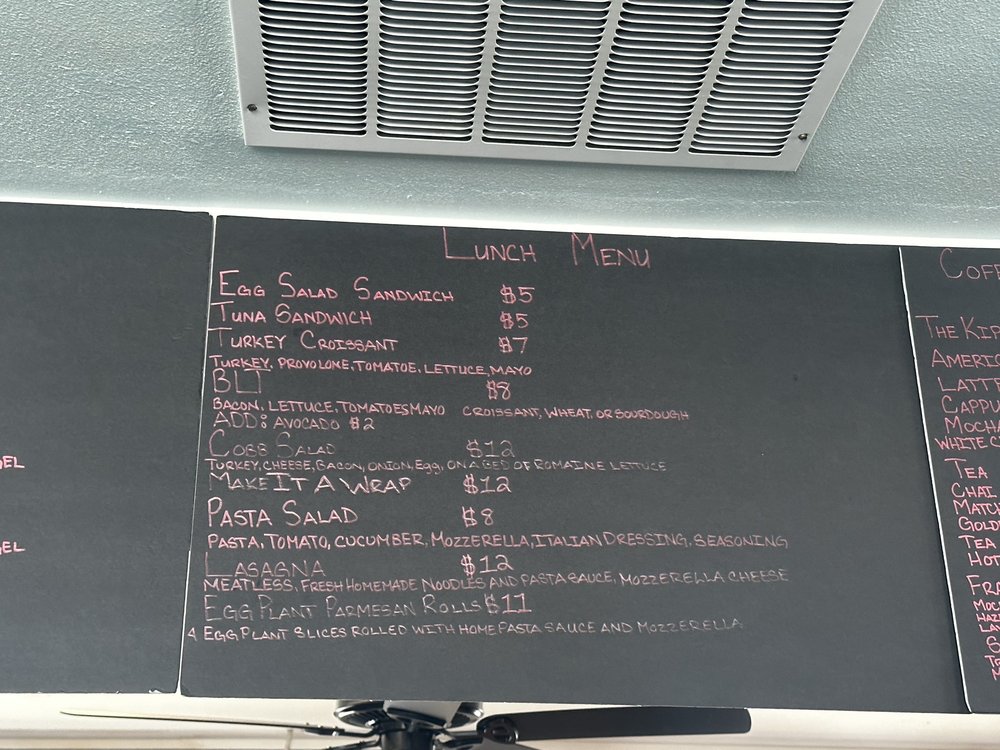 GEL
GEL
LUNCH MENU
EGG SALAD SANDWICH $5
TUNA SANDWICH $5
TURKEY CROISSANT $7
TURKEY, PROVOLONE, TOMATOE, LETTUCE, MAYO
BLT $8
BACON, LETTUCE, TOMATOES MAYO CROISSANT, WHEAT, OR SOURDOUGH
ADD: AVOCADO $2
COBB SALAD $12
TURKEY, CHEESE, BACON, ONION, EGG, ON A BED OF ROMAINE LETTUCE
MAKE IT A WRAP $12
PASTA SALAD $8
PASTA, TOMATO, CUCUMBER, MOZZERELLA, ITALIAN DRESSING, SEASONING
LASAGNA $12
MEATLESS, FRESH HOMEMADE NOODLES AND PASTA SAUCE, MOZZERELLA CHEESE
EGG PLANT PARMESAN ROLLS $11
4 EGG PLANT SLICES ROLLED WITH HOME PASTA SAUCE AND MOZZERELLA
COFF
THE KIP
AMERIC
LATT
CAPPU
MOCHA
WHITE C
TEA
CHAI
MATCH
GOLD
TEA
HOT
FRA
MOC
HAZ
LAV